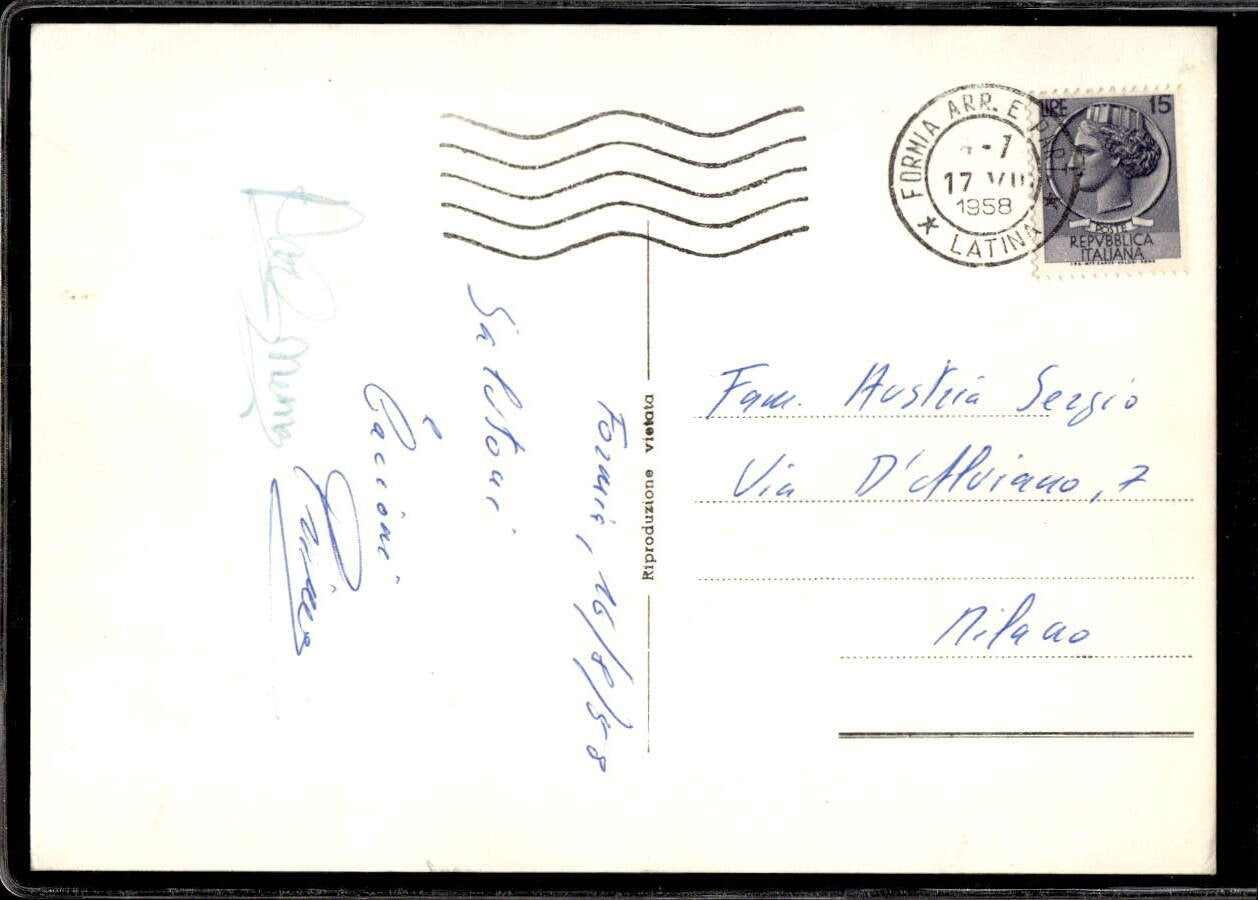 FORMIA ARR. E PART
-7
17 VIII
1958
* LATINA *
LIRE 15
POSTE
REPVBBLICA
ITALIANA
Formia, 16/8/58
Salutoni
e
Bacioni
Riproduzione vietata
Fam. Austria Sergio
Via D'Alviano, 7
Milano